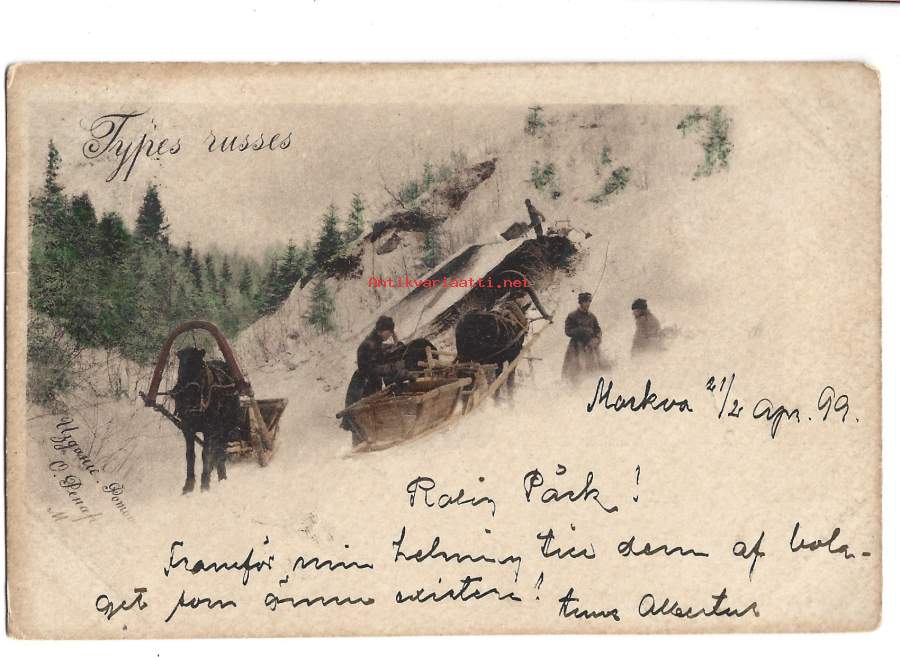 Types russes
Antikvariaatti.net
Изданіе Фотог
О. Ренар
М
Moskva 21/2 Apr. 99.
Påsk!
Framför min helsning till dem af bola-
get som ännu existera!
Albertus